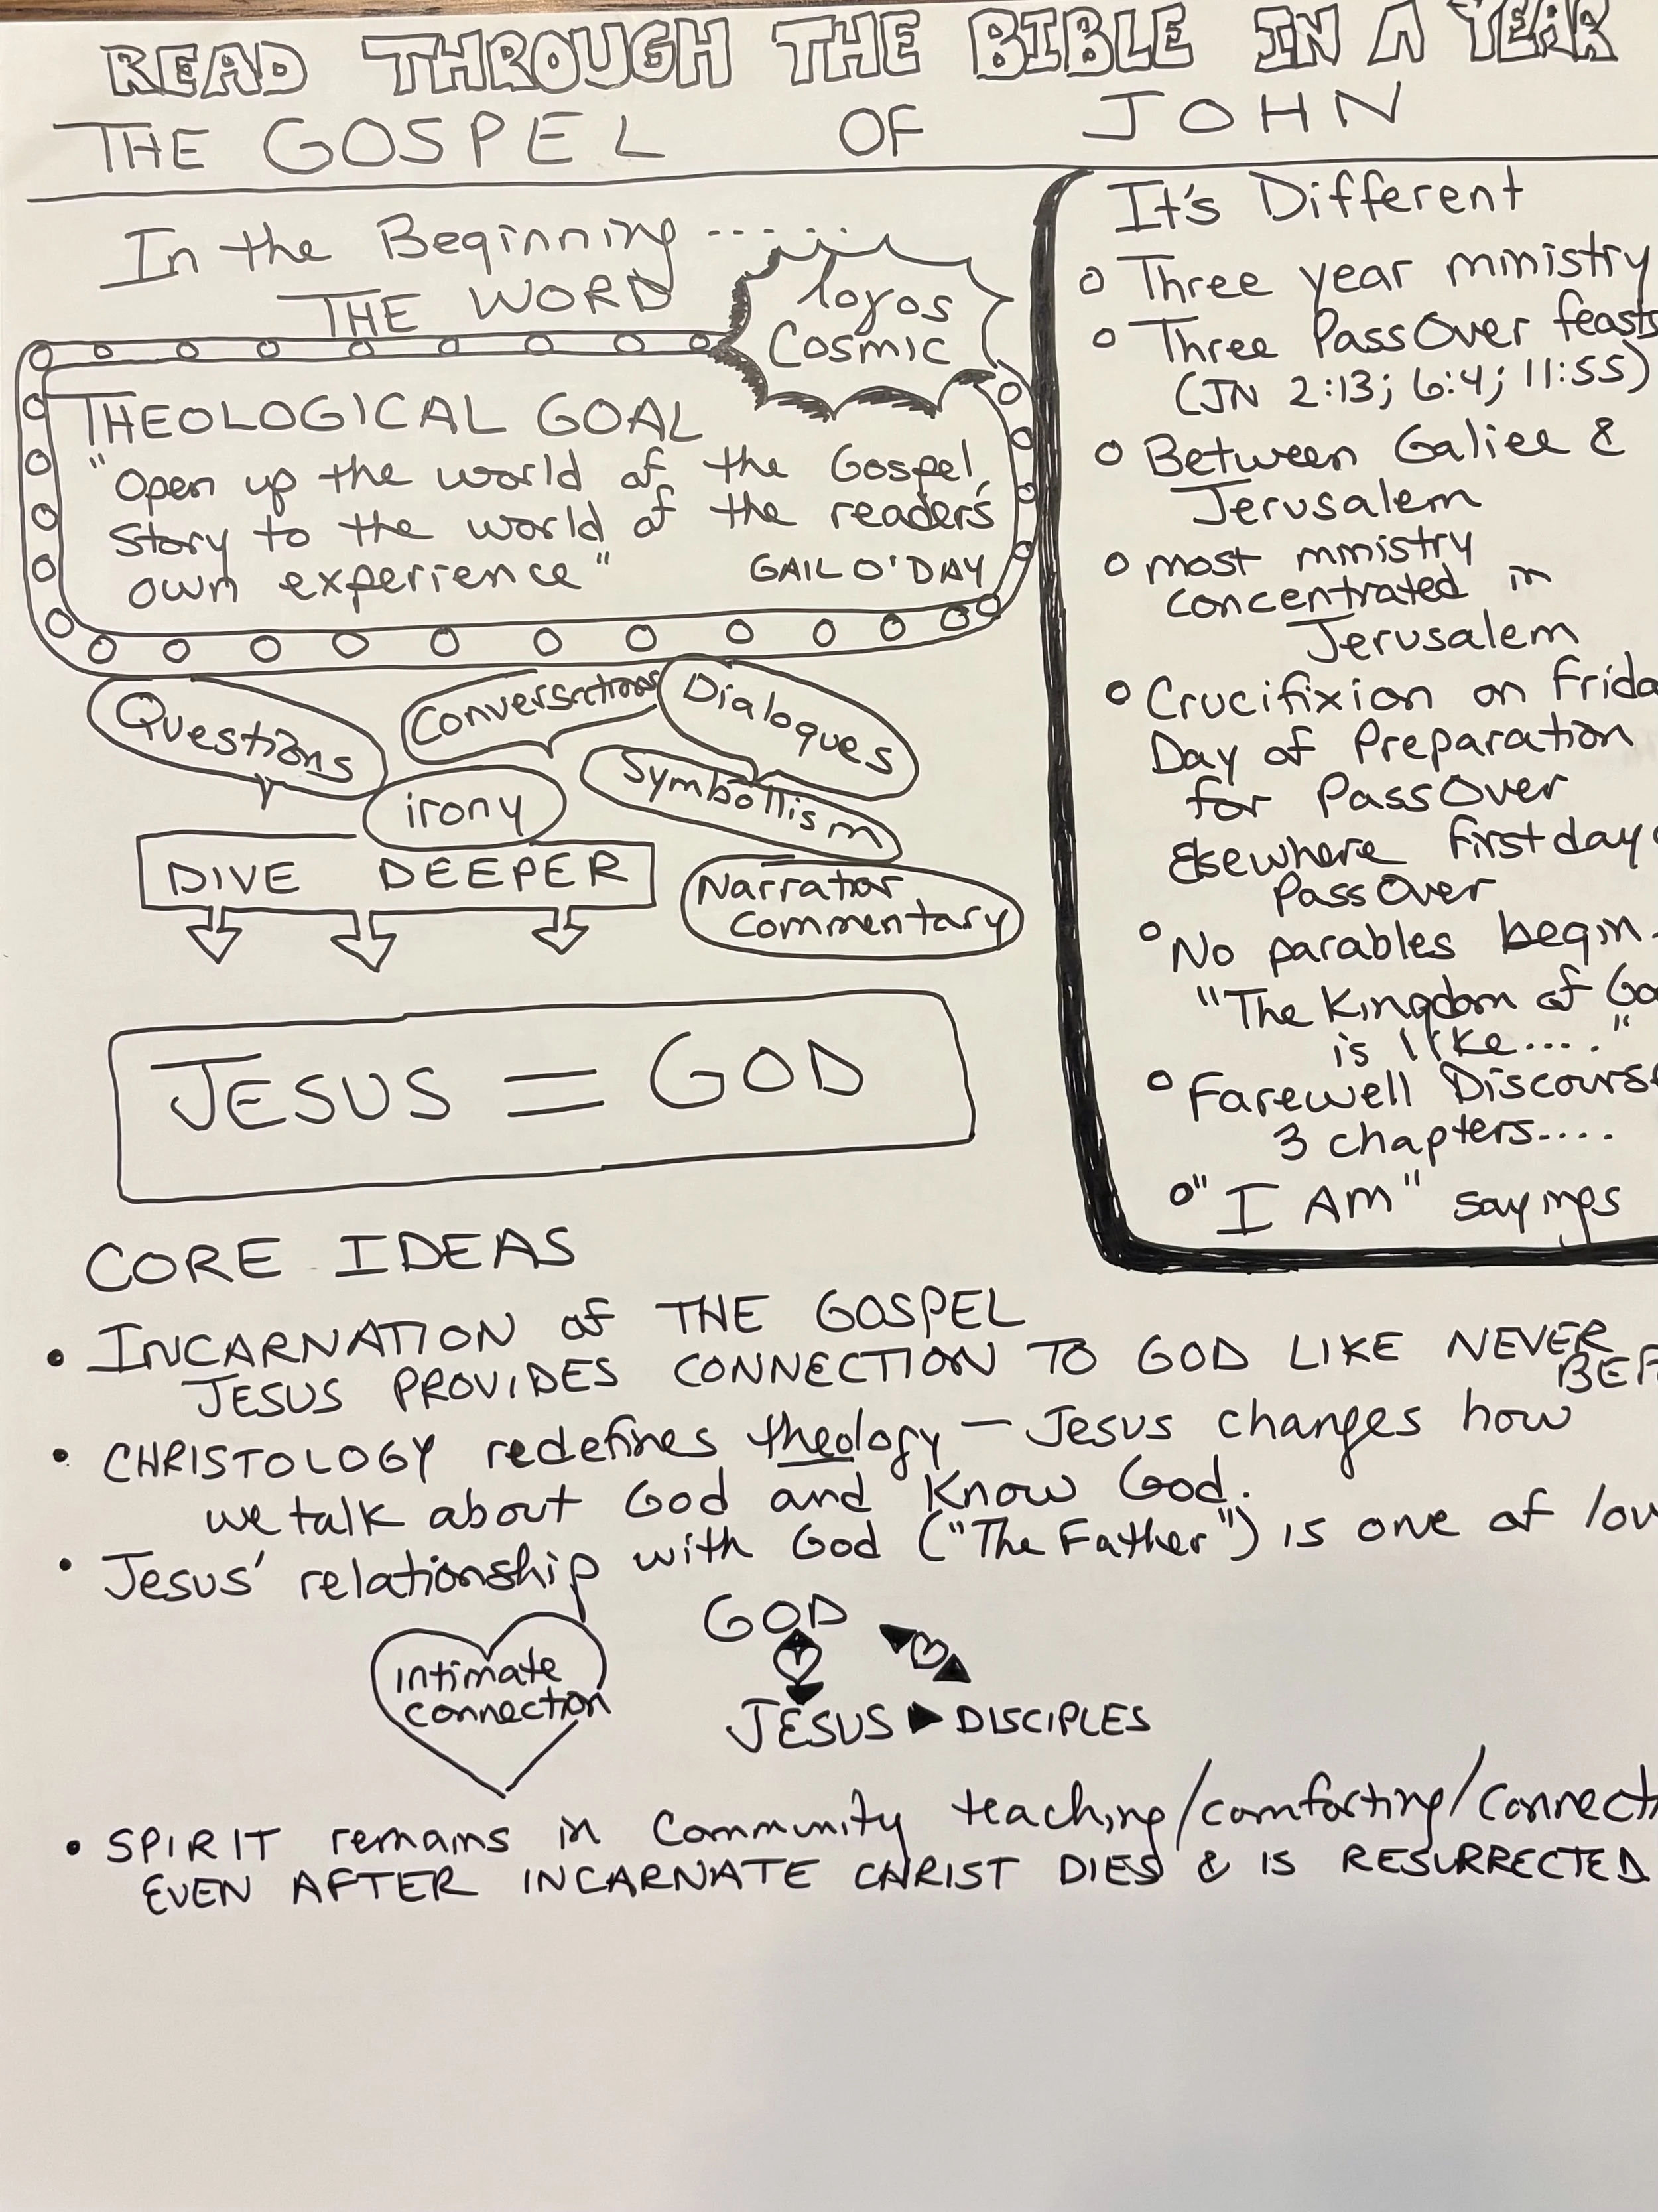 READ THROUGH THE BIBLE IN A YEAR
THE GOSPEL OF JOHN
In the Beginning ........
THE WORD
logos
Cosmic
THEOLOGICAL GOAL
"Open up the world of the Gospel
story to the world of the reader's
own experience" GAIL O'DAY
Questions
Conversations
Dialogues
irony
Symbollism
DIVE DEEPER
Narrator
commentary
JESUS = GOD
It's Different
Three year ministry
Three PassOver feasts
(JN 2:13; 6:4; 11:55)
Between Galiee &
Jerusalem
most ministry
concentrated in
Jerusalem
Crucifixion on Frida
Day of Preparation
for PassOver
Elsewhere first day
PassOver
No parables begin
"The Kingdom of Go
is like...."
Farewell Discourse
3 chapters....
"I AM" sayings
CORE IDEAS
• INCARNATION of THE GOSPEL
JESUS PROVIDES CONNECTION TO GOD LIKE NEVER
BEF
• CHRISTOLOGY redefines theology — Jesus changes how
we talk about God and Know God.
• Jesus' relationship with God ("The Father") is one of lov
GOD
intimate
connection
JESUS DISCIPLES
• SPIRIT remains in Community teaching/comforting/connecti
EVEN AFTER INCARNATE CHRIST DIES & IS RESURRECTED